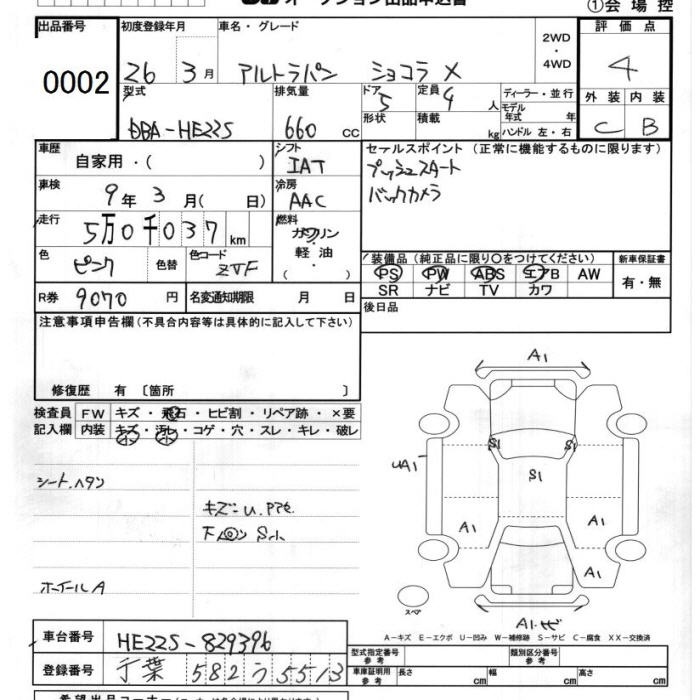 オークション出品申込書 ①会場控
出品番号 0002
初度登録年月 26年 3月
車名・グレード アルトラパン ショコラ X
2WD・4WD
評価点 4
外装 C 内装 B
型式 DBA-HE22S
排気量 660 cc
ドア 5
形状
定員 4人
積載 kg
ディーラー・並行
モデル年式 年
ハンドル 左・右
車歴 自家用・( )
シフト IAT
セールスポイント (正常に機能するものに限ります)
プッシュスタート
バックカメラ
車検 9年 3月( 日)
冷房 AAC
走行 5万0千037km
燃料 ガソリン・軽油・( )
色 ピンク 色替
色コード ZVF
装備品 (純正品に限り○をつけてください)
PS PW ABS エアB AW
SR ナビ TV カワ
新車保証書 有・無
R券 9070円
名変通知期限 月 日
後日品
注意事項申告欄 (不具合内容等は具体的に記入して下さい)
修復歴 有 〔箇所 〕
検査員記入欄
FW キズ・飛石・ヒビ割・リペア跡・×要
内装 キズ・汚レ・コゲ・穴・スレ・キレ・破レ
シート ヘタリ
キズ
ホイールA
A1
S1 S1
UA1 S1
A1 A1
A1
スペア
A-キズ E-エクボ U-凹み W-補修跡 S-サビ C-腐食 XX-交換済
車台番号 HE22S-829396
登録番号 千葉 582 う 5513
型式指定番号 参考
類別区分番号 参考
車庫証明用 参考 長さ cm 幅 cm 高さ cm